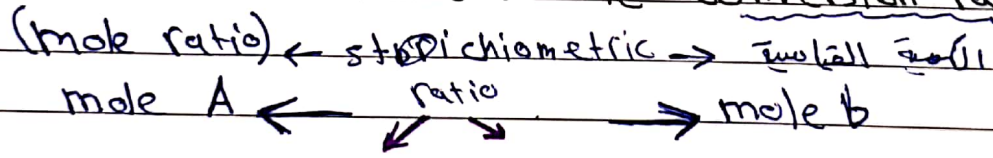 (mole ratio) ← stoichiometric → القياسية
mole A ← ratio → mole b